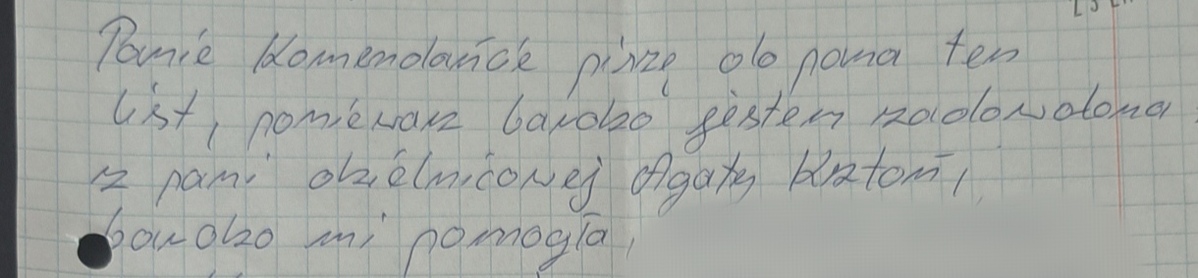 Panie Komendańcie piszę do pana ten
list, ponieważ bardzo jestem zadowolona
z pani dzielnicowej Agaty Krztoń,
bardzo mi pomogła,